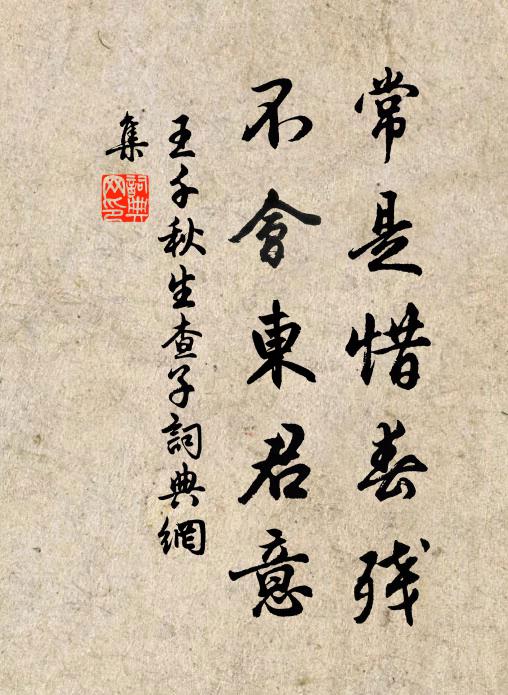 常是惜春残
不會東君意
王千秋生查子詞典網
集
詞典
网印